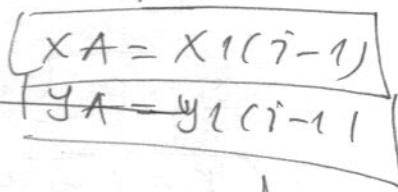 XA = X1(i-1)
YA = Y1(i-1)